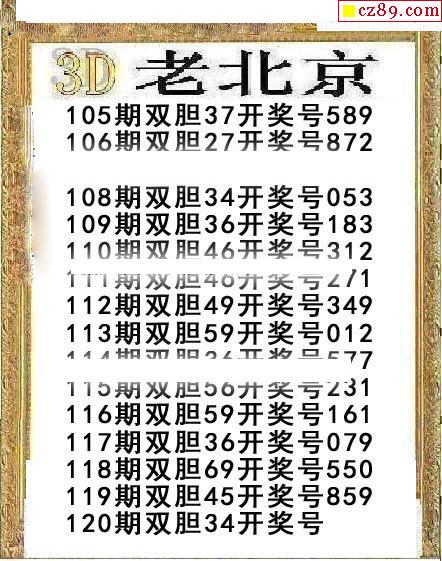 cz89.com
3D 老北京
105期双胆37开奖号589
106期双胆27开奖号872
108期双胆34开奖号053
109期双胆36开奖号183
110期双胆46开奖号312
111期双胆46开奖号271
112期双胆49开奖号349
113期双胆59开奖号012
114期双胆36开奖号577
115期双胆56开奖号231
116期双胆59开奖号161
117期双胆36开奖号079
118期双胆69开奖号550
119期双胆45开奖号859
120期双胆34开奖号